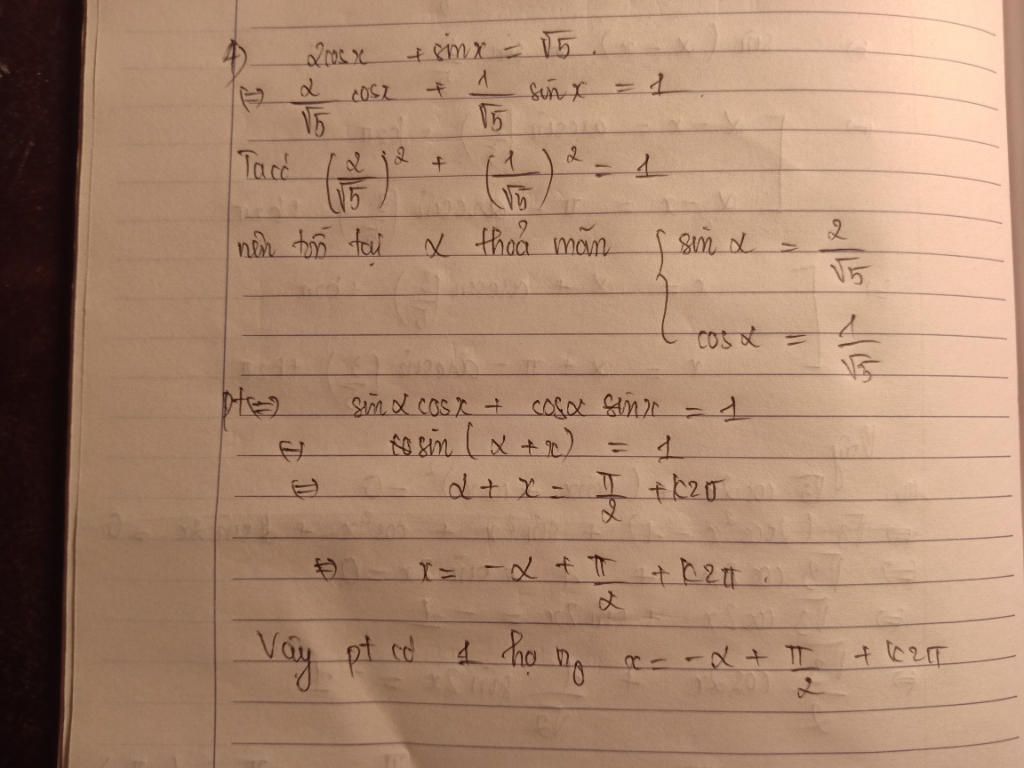 f) 2cosx + sinx = √5.
⇔ 2/√5 cosx + 1/√5 sinx = 1.
Ta có (2/√5)² + (1/√5)² = 1
nên tồn tại α thoả mãn { sin α = 2/√5
cos α = 1/√5
pt ⇔ sin α cosx + cosα sinx = 1
⇔ sin (α + x) = 1
⇔ α + x = π/2 + k2π
⇔ x = -α + π/2 + k2π.
Vậy pt có 1 họ n₀ x = -α + π/2 + k2π